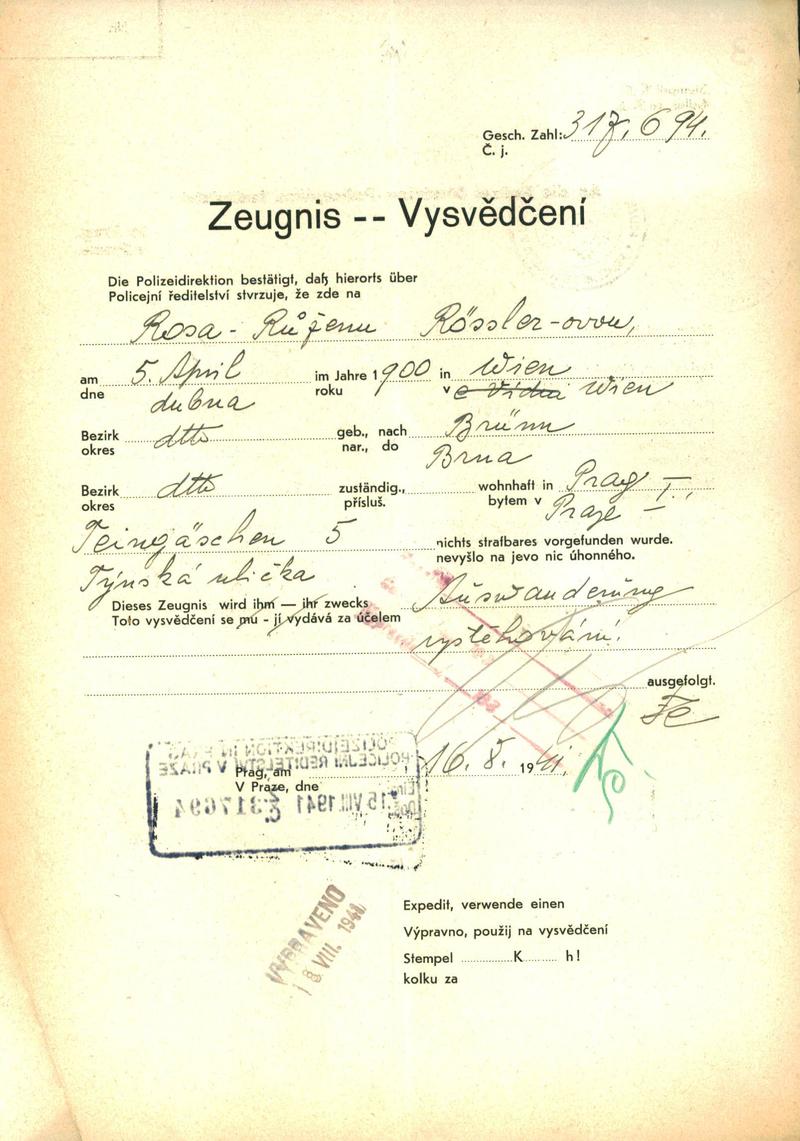 Gesch. Zahl: 317.694.
Č. j.
Zeugnis -- Vysvědčení
Die Polizeidirektion bestätigt, daß hierorts über
Policejní ředitelství stvrzuje, že zde na
Rosa - Růženu Rössler-ovou,
am 5. April im Jahre 1900 in Wien
dne dubna roku v Wien
Bezirk dtto geb., nach Brünn
okres nar., do Brna
Bezirk dtto zuständig., wohnhaft in Prag I.,
okres přísluš. bytem v Praze I.
Teingässchen 5 nichts strafbares vorgefunden wurde.
Týnská ulička nevyšlo na jevo nic úhonného.
Dieses Zeugnis wird ihm — ihr zwecks Auswanderung
Toto vysvědčení se mu - jí vydává za účelem vystěhování.
ausgefolgt.
POLIZEIDIREKTION IN PRAG
POLICEJNÍ ŘEDITELSTVÍ V PRAZE
Prag, am 16. 8. 1941.
V Praze, dne
15 VIII. 1941 Č 317694
VYPRAVENO
18 VIII. 1941
Expedit, verwende einen
Výpravno, použij na vysvědčení
Stempel K h!
kolku za